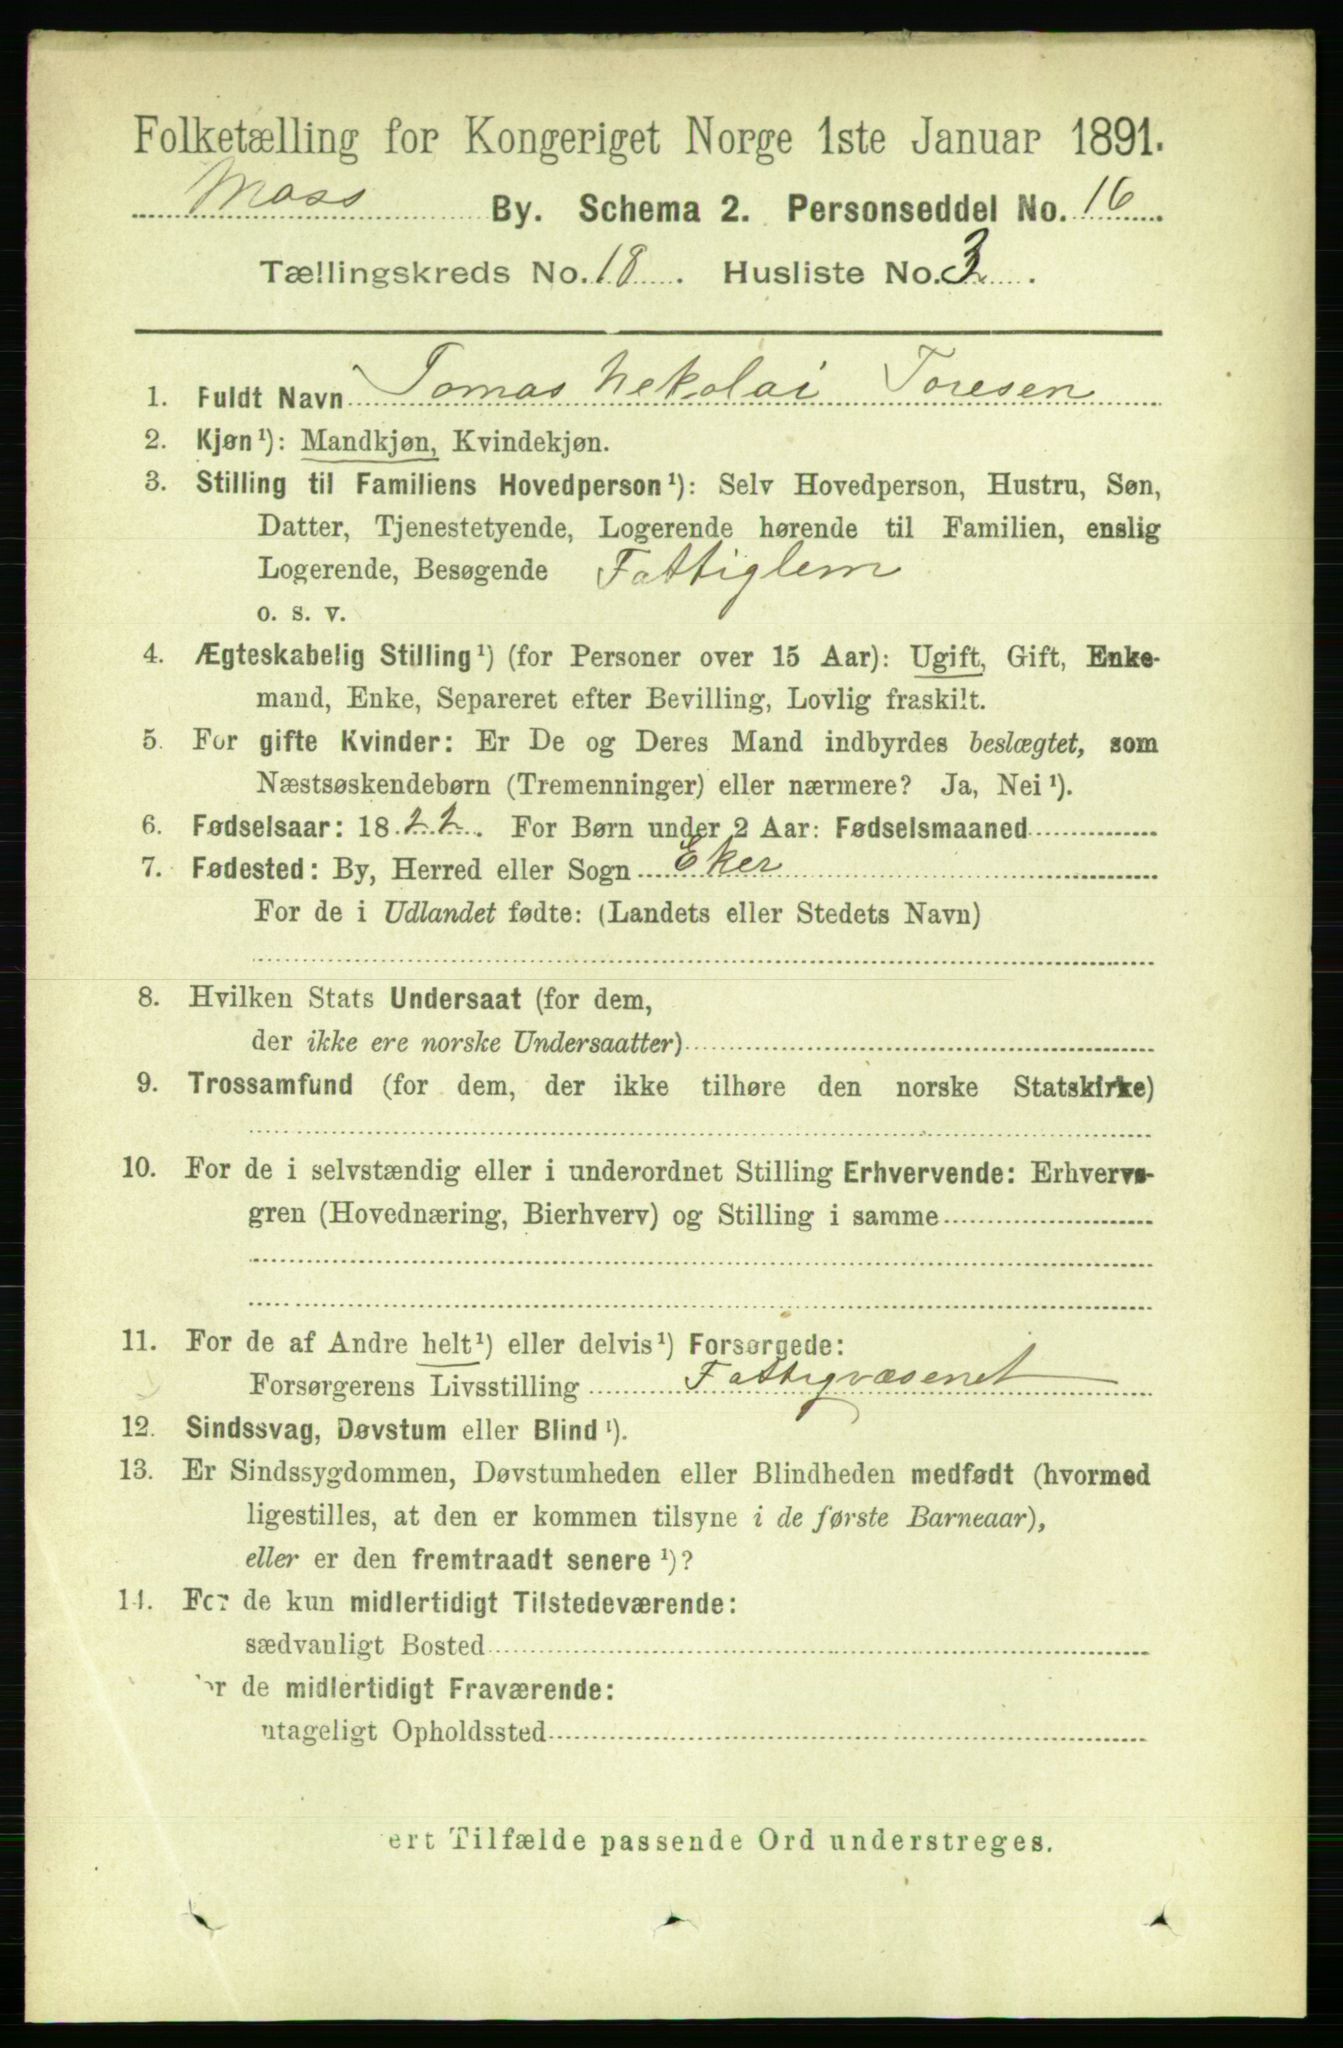 Folketælling for Kongeriget Norge 1ste Januar 1891.
Moss By. Schema 2. Personseddel No. 16.
Tællingskreds No. 18. Husliste No. 3.
1. Fuldt Navn Tomas Nekolai Toresen
2. Kjøn¹): Mandkjøn, Kvindekjøn.
3. Stilling til Familiens Hovedperson¹): Selv Hovedperson, Hustru, Søn,
Datter, Tjenestetyende, Logerende hørende til Familien, enslig
Logerende, Besøgende Fattiglem
o. s. v.
4. Ægteskabelig Stilling¹) (for Personer over 15 Aar): Ugift, Gift, Enke-
mand, Enke, Separeret efter Bevilling, Lovlig fraskilt.
5. For gifte Kvinder: Er De og Deres Mand indbyrdes beslægtet, som
Næstsøskendebørn (Tremenninger) eller nærmere? Ja, Nei¹).
6. Fødselsaar: 1822. For Børn under 2 Aar: Fødselsmaaned
7. Fødested: By, Herred eller Sogn Eker
For de i Udlandet fødte: (Landets eller Stedets Navn)
8. Hvilken Stats Undersaat (for dem,
der ikke ere norske Undersaatter)
9. Trossamfund (for dem, der ikke tilhøre den norske Statskirke)
10. For de i selvstændig eller i underordnet Stilling Erhvervende: Erhvervs-
gren (Hovednæring, Bierhverv) og Stilling i samme
11. For de af Andre helt¹) eller delvis¹) Forsørgede:
Forsørgerens Livsstilling Fattigvæsenet
12. Sindssvag, Døvstum eller Blind¹).
13. Er Sindssygdommen, Døvstumheden eller Blindheden medfødt (hvormed
ligestilles, at den er kommen tilsyne i de første Barneaar),
eller er den fremtraadt senere¹)?
14. For de kun midlertidigt Tilstedeværende:
sædvanligt Bosted
or de midlertidigt Fraværende:
ntageligt Opholdssted
ert Tilfælde passende Ord understreges.